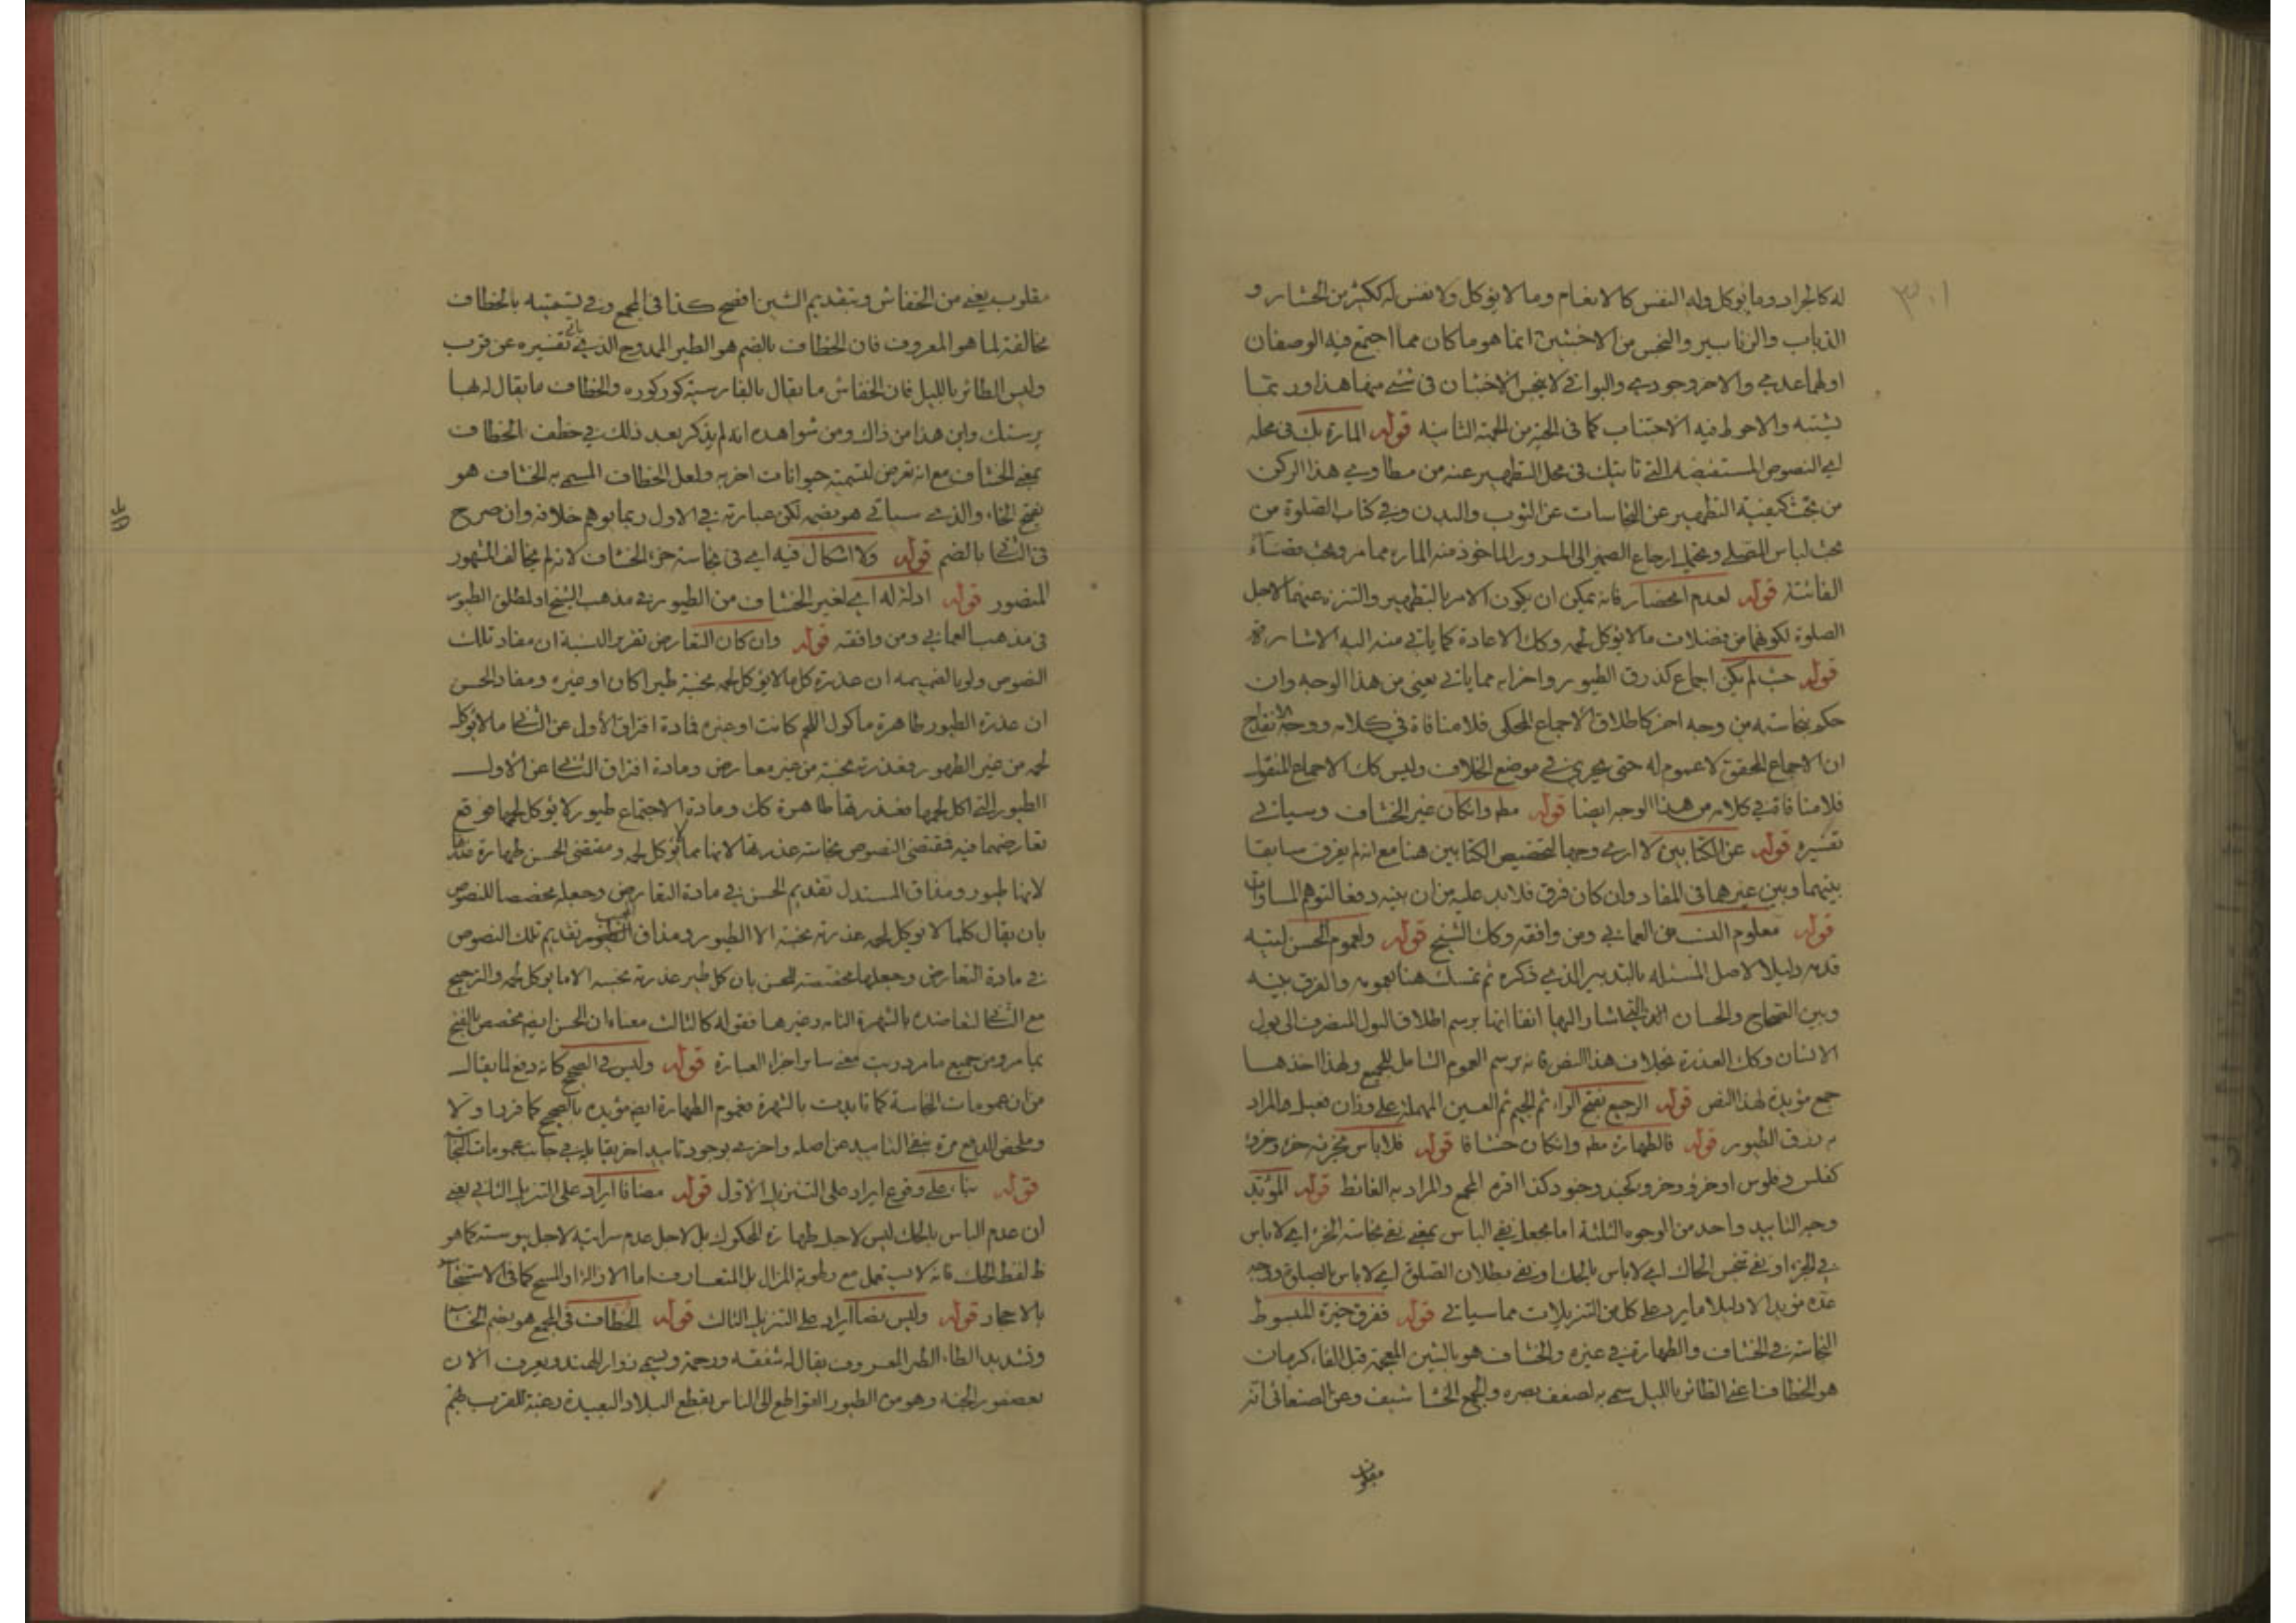 ٣٠١
له كالجراد وما يؤكل وله النفس كالانعام وما لا يؤكل ولا نفس له ككثير من الحشار و
الذباب والزنابير والنجس من الاخبثين انما هو ما كان مما اجتمع فيه الوصفان
اولهما عدمي والاخر وجودي والبواقي لا ينجس الاخبثان في شئ منها هذا وربما
يشتبه والاحوط فيه الاجتناب كما في الحية من الجهة الثانية قوله المارة بك في محله
اي النصوص المستفيضة التي تاتيك في محل التطهير عنه من مطاوي هذا الركن
من بحث كيفية التطهير عن النجاسات عن الثوب والبدن وفي كتاب الصلوة من
بحث لباس المصلي ويحتمل ارجاع الضمير الى المرور الماخوذ منه المارة مما مر وبحث قضاء
الفائتة قوله لعدم انحصار فانه يمكن ان يكون الامر بالتطهير والتنزه عنهما لاجل
الصلوة لكونهما من فضلات ما لا يؤكل لحمه وكك الاعادة كما ياتي منه اليه الاشارة
قوله حيث لم يكن اجماع كذرق الطيور واخرانه مما ياتي يعني من هذا الوجه وان
حكم بنجاسته من وجه اخر كاطلاق الاجماع المحكي فلا منافاة في كلامه ووجه
ان الاجماع المحقق لا عموم له حتى يجري في موضع الخلاف وليس كك الاجماع المنقول
فلا منافاة في كلامه من هذا الوجه ايضا قوله مطه وانكان غير الخشاف وسياتي
تفسيره قوله عن الكتابين لا ارى وجها لتخصيص الكتابين هنا مع انه لم يفرق سابقا
بينهما وبين غيرهما في المفاد وان كان فرق فلا بد عليه من ان يبينه دفعا لتوهم المساواة
قوله معلوم النسب من العماني ومن وافقه وكك الشيخ قوله ولعموم الحسن
قدمه دليلا لاصل المسئله بالتدبير الذي ذكره ثم تمسك هنا بعمومه والفرق بينه
وبين الصحاح والحسان التي اشار اليها انفا انها برسم اطلاق البول المنصرف الى بول
الانسان وكك العذرة بخلاف هذا النص فانه برسم العموم الشامل للجميع ولهذا اخذها
جمع مؤيدة لهذا النص قوله الرجيع بفتح الراء ثم الجيم ثم العين المهملة على وزان فعيل والمراد
به ذرق الطيور قوله فالطهارة مطه وانكان خشافا قوله فلا باس بخرئه خرء وخروء
كفلس وفلوس او خرؤ وخروء كجند وجنود كذا اقره المجمع والمراد به الغائط قوله المؤيد
وجه التاييد واحد من الوجوه الثلثة اما بجعل نفي الباس بمعنى نفي نجاسة الخرء اي لا باس
في الخرء او نفي تنجس الحاك اي لا باس بالحك او نفي بطلان الصلوة اي لا باس بالصلوة ووجه
عده مؤيدا لا دليلا ما يرد على كل من التنزيلات مما سياتي قوله ففرق خيرة المبسوط
النجاسة في الخشاف والطهارة في غيره والخشاف هو بالشين المعجمة قبل الفاء كرمان
هو الخطاف اعني الطائر بالليل سمي به لضعف بصره والجمع الخشاشيف وعن الصنعاني انه
مقلوب
مقلوب يعني من الخفاش وبتقديم الشين افصح كذا في المجمع وفي تسميته بالخطاف
مخالفة لما هو المعروف فان الخطاف بالضم هو الطير الممدوح الذي ياتي تفسيره عن قرب
وليس الطائر بالليل فان الخفاش ما يقال بالفارسية كوركوره والخطاف ما يقال له لها
پرستك واين هذا من ذاك ومن شواهده انه لم يذكر بعد ذلك في خطف الخطاف
بمعنى الخشاف مع انه تعرض لتسمية حيوانات اخر به ولعل الخطاف المسمى به الخشاف هو
بفتح الخاء والذي سياتي هو بضمه لكن عبارته في الاول ربما يوهم خلافه وان صرح
في الثاني بالضم قوله ولا اشكال فيه اي في نجاسة خرء الخشاف لانه لم يخالف المشهور
المنصور قوله ادلة له اي لغير الخشاف من الطيور في مذهب الشيخ او لمطلق الطيور
في مذهب العماني ومن وافقه قوله وان كان التعارض تقرير النسبة ان مفاد تلك
النصوص ولو بالضميمه ان عذرة كل ما لا يؤكل لحمه نجسة طيرا كان او غيره ومفاد الحسن
ان عذرة الطيور طاهرة ماكول اللحم كانت او غيره فمادة افتراق الأول عن الثاني ما لا يؤكل
لحمه من غير الطيور فعذرته نجسة من غير معارض ومادة افتراق الثاني عن الأول
الطيور التي اكل لحمها فعذرتها طاهرة كك ومادة الاجتماع طيور لا يؤكل لحمها فوقع
تعارضهما فيه فمقتضى النصوص نجاسة عذرتها لانها مما لا يؤكل لحمه ومقتضى الحسن طهارة
لانها طيور ومذاق المستدل تقديم الحسن في مادة التعارض وجعله مخصصا للنصوص
بان يقال كلما لا يؤكل لحمه عذرته نجسة الا الطيور ومذاق تقديم تلك النصوص
في مادة التعارض وجعلها مخصصة للحسن بان كل طير عذرته نجسه الا ما يؤكل لحمه والترجيح
مع الثاني لتعاضده بالشهرة التامه وغيرها فقوله كالثالث معناه ان الحسن ايضا مخصص بالفتح
بما مر ومن جميع ما مر دريت معنى سائر اجزاء العبارة قوله وليس في الصحيح كانه دفع لما يقال
من ان عمومات النجاسة كما تايدت بالشهرة فعموم الطهارة ايضا مؤيده بالصحيح كما قرره اولا
وملخص الدفع مرة بنفي التاييد عن اصله واخرى بوجود تاييد اخر يقابله في جانب عمومات النجاسة
قوله بناء على وقوع ايراد على التنزيل الاول قوله مضافا ايراد على التنزيل الثاني يعني
ان عدم الباس بالحك ليس لاجل طهارة المحكوك بل لاجل عدم سرايته لاجل يبوسته كما هو
ظ لفظ الحك فانه لا يستعمل مع رطوبة المزال بل المتعارف اما الازالة او المسح كما في الاستنجاء
بالاحجار قوله وليس نصا ايراد على التنزيل الثالث قوله الخطاف في المجمع هو بضم الخاء
وتشديد الطاء الطير المعروف يقال له شفقه ورحمة ويسمى زوار الهند ويعرف الان
بعصفور الجنة وهو من الطيور القواطع الى الناس يقطع البلاد البعيدة رغبة للقرب